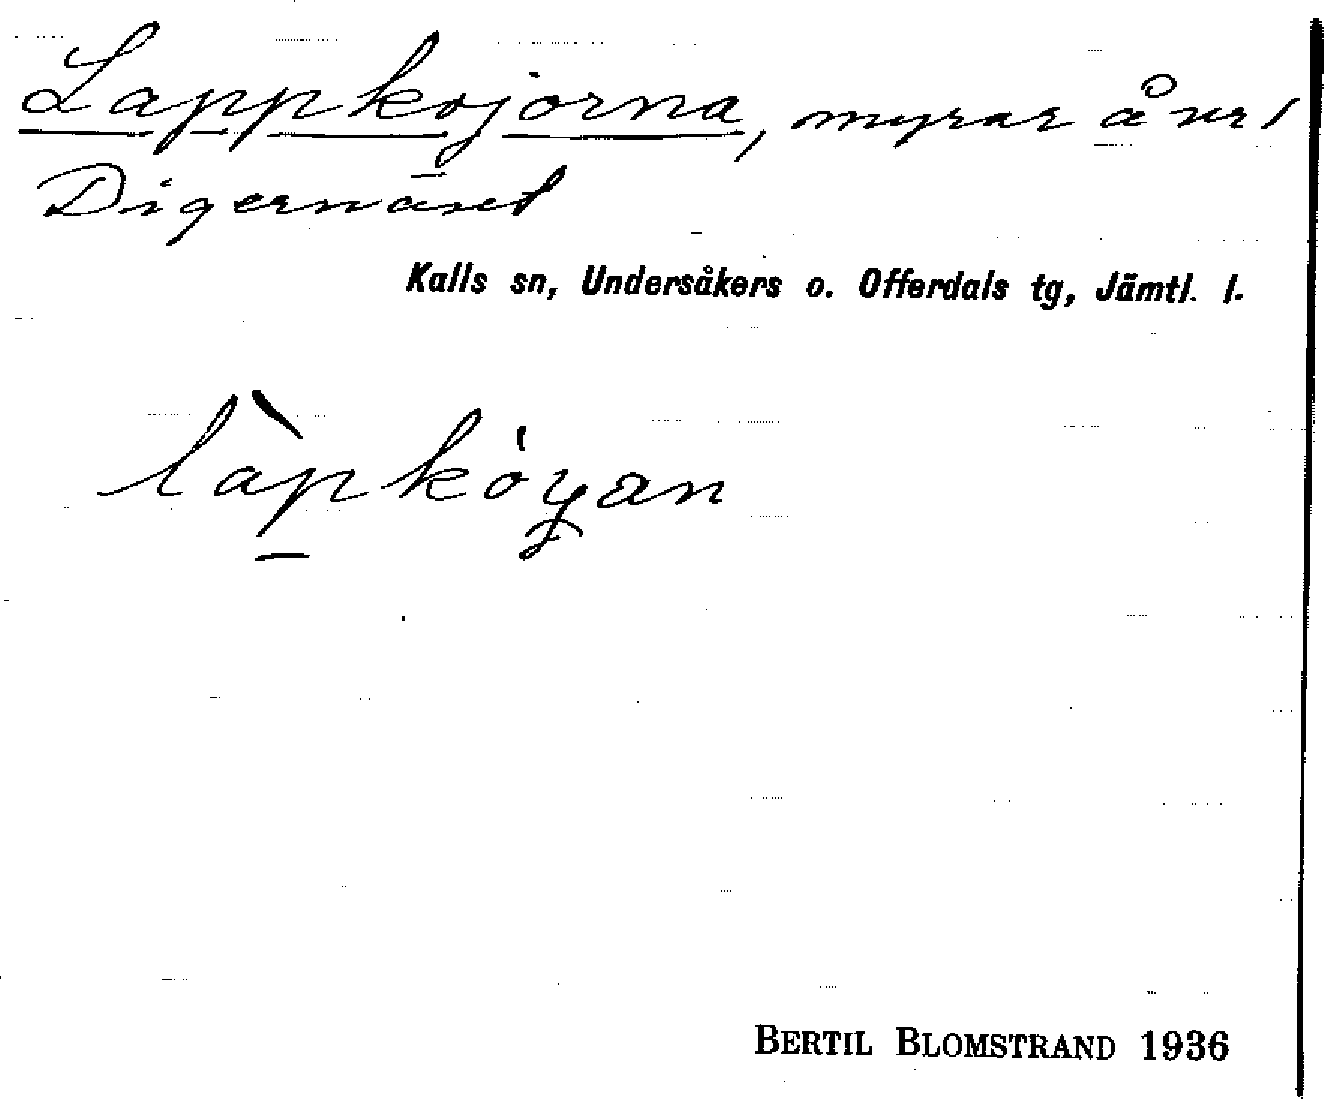 Lappkojorna, myrar å vrl
Digernäset
Kalls sn, Undersåkers o. Offerdals tg, Jämtl. l.
làpkòyan
BERTIL BLOMSTRAND 1936